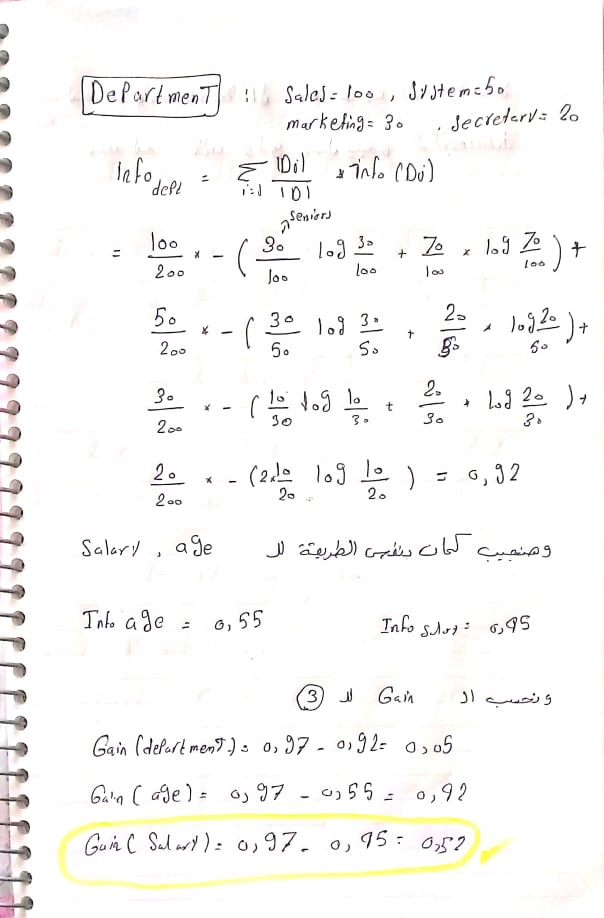 Department :: Sales = 100 , System = 50
marketing = 30 , Secretary = 20
Info dept = Σ i=1 |Di| / |D| * Info (Di)
seniors
= 100/200 * - ( 30/100 log 30/100 + 70/100 * log 70/100 ) +
50/200 * - ( 30/50 log 30/50 + 20/50 * log 20/50 ) +
30/200 * - ( 10/30 log 10/30 + 20/30 * log 20/30 ) +
20/200 * - (2*10/20 log 10/20 ) = 0,92
وهنجيب كمان بنفس الطريقة الـ Salary , age
Info age = 0,55 Info salary = 0,45
ونحسب الـ Gain لـ ③
Gain (department) = 0,97 - 0,92 = 0,05
Gain ( age ) = 0,97 - 0,55 = 0,42
Gain ( Salary ) = 0,97 - 0,45 = 0,52